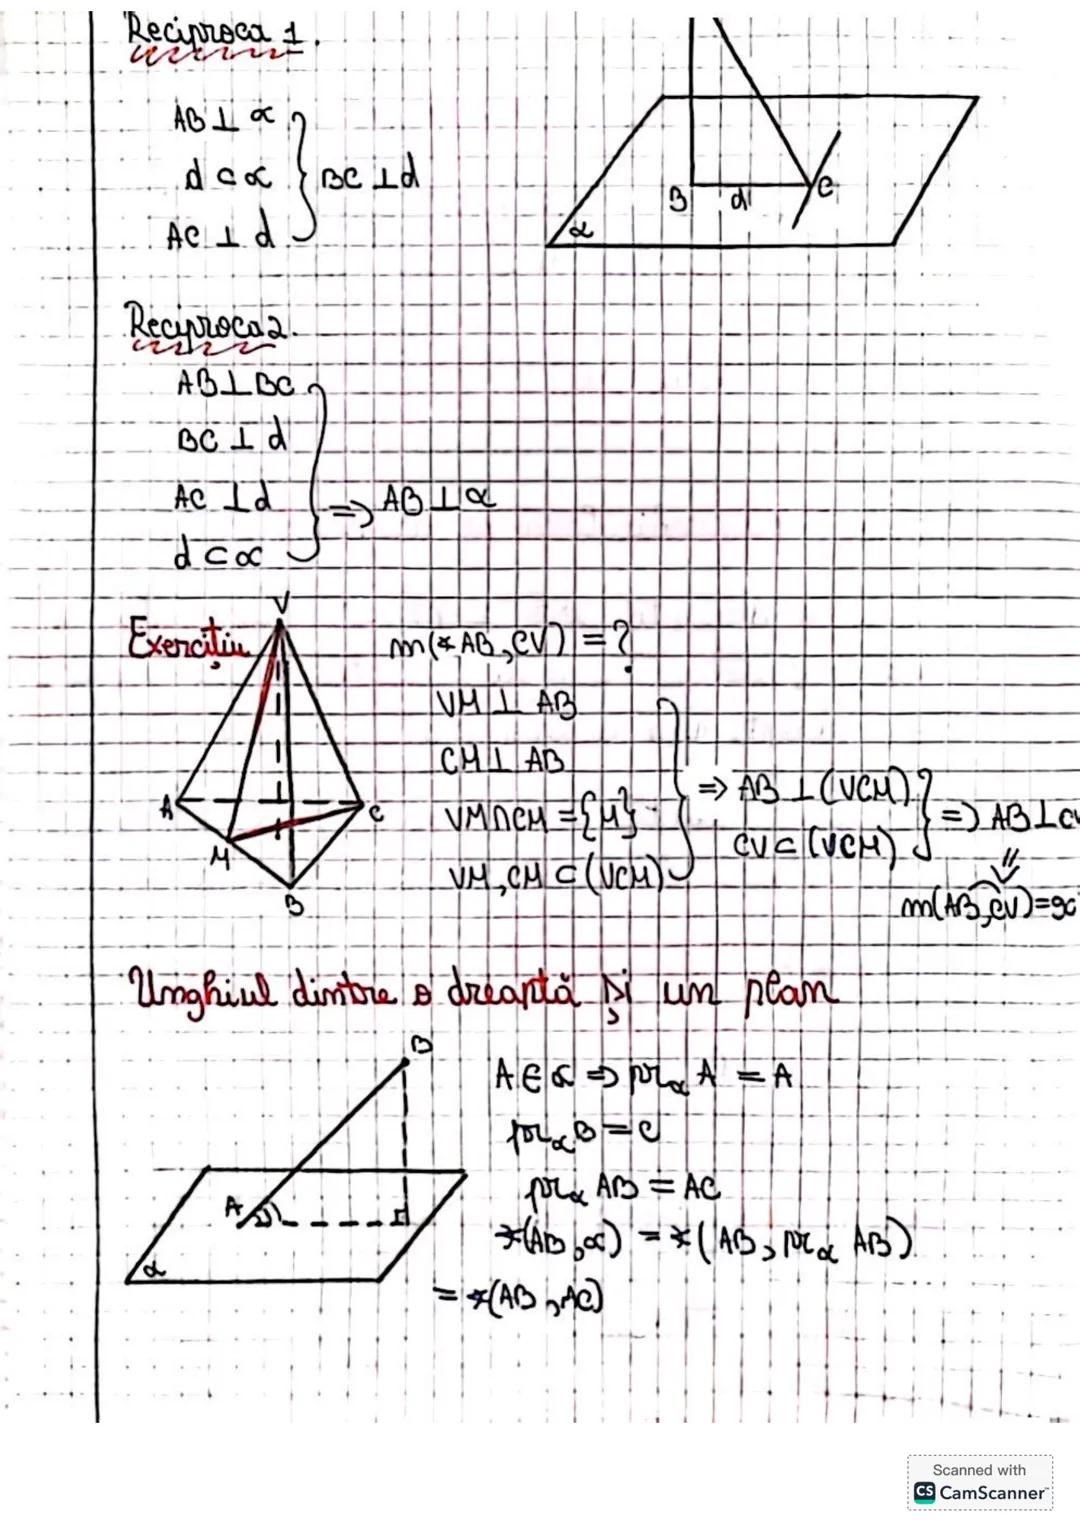 Reciproca 1.
AB ⊥ α
d ⊂ α } BC ⊥ d
AC ⊥ d
B d C
α
Reciproca 2.
AB ⊥ BC
BC ⊥ d
AC ⊥ d => AB ⊥ α
d ⊂ α
Exercițiu
V
A
M
B
C
m(∢AB,CV) = ?
VM ⊥ AB
CM ⊥ AB
VM∩CM = {M} => AB ⊥ (VCM)
VM, CM ⊂ (VCM)
CV ⊂ (VCM) => AB ⊥ CV
m(AB,CV)=90
Unghiul dintre o dreaptă și un plan
B
A
α
A ∈ α => pr_α A = A
pr_α B = C
pr_α AB = AC
∢(AB,α) = ∢(AB, pr_α AB)
= ∢(AB, AC)
Scanned with
CS CamScanner